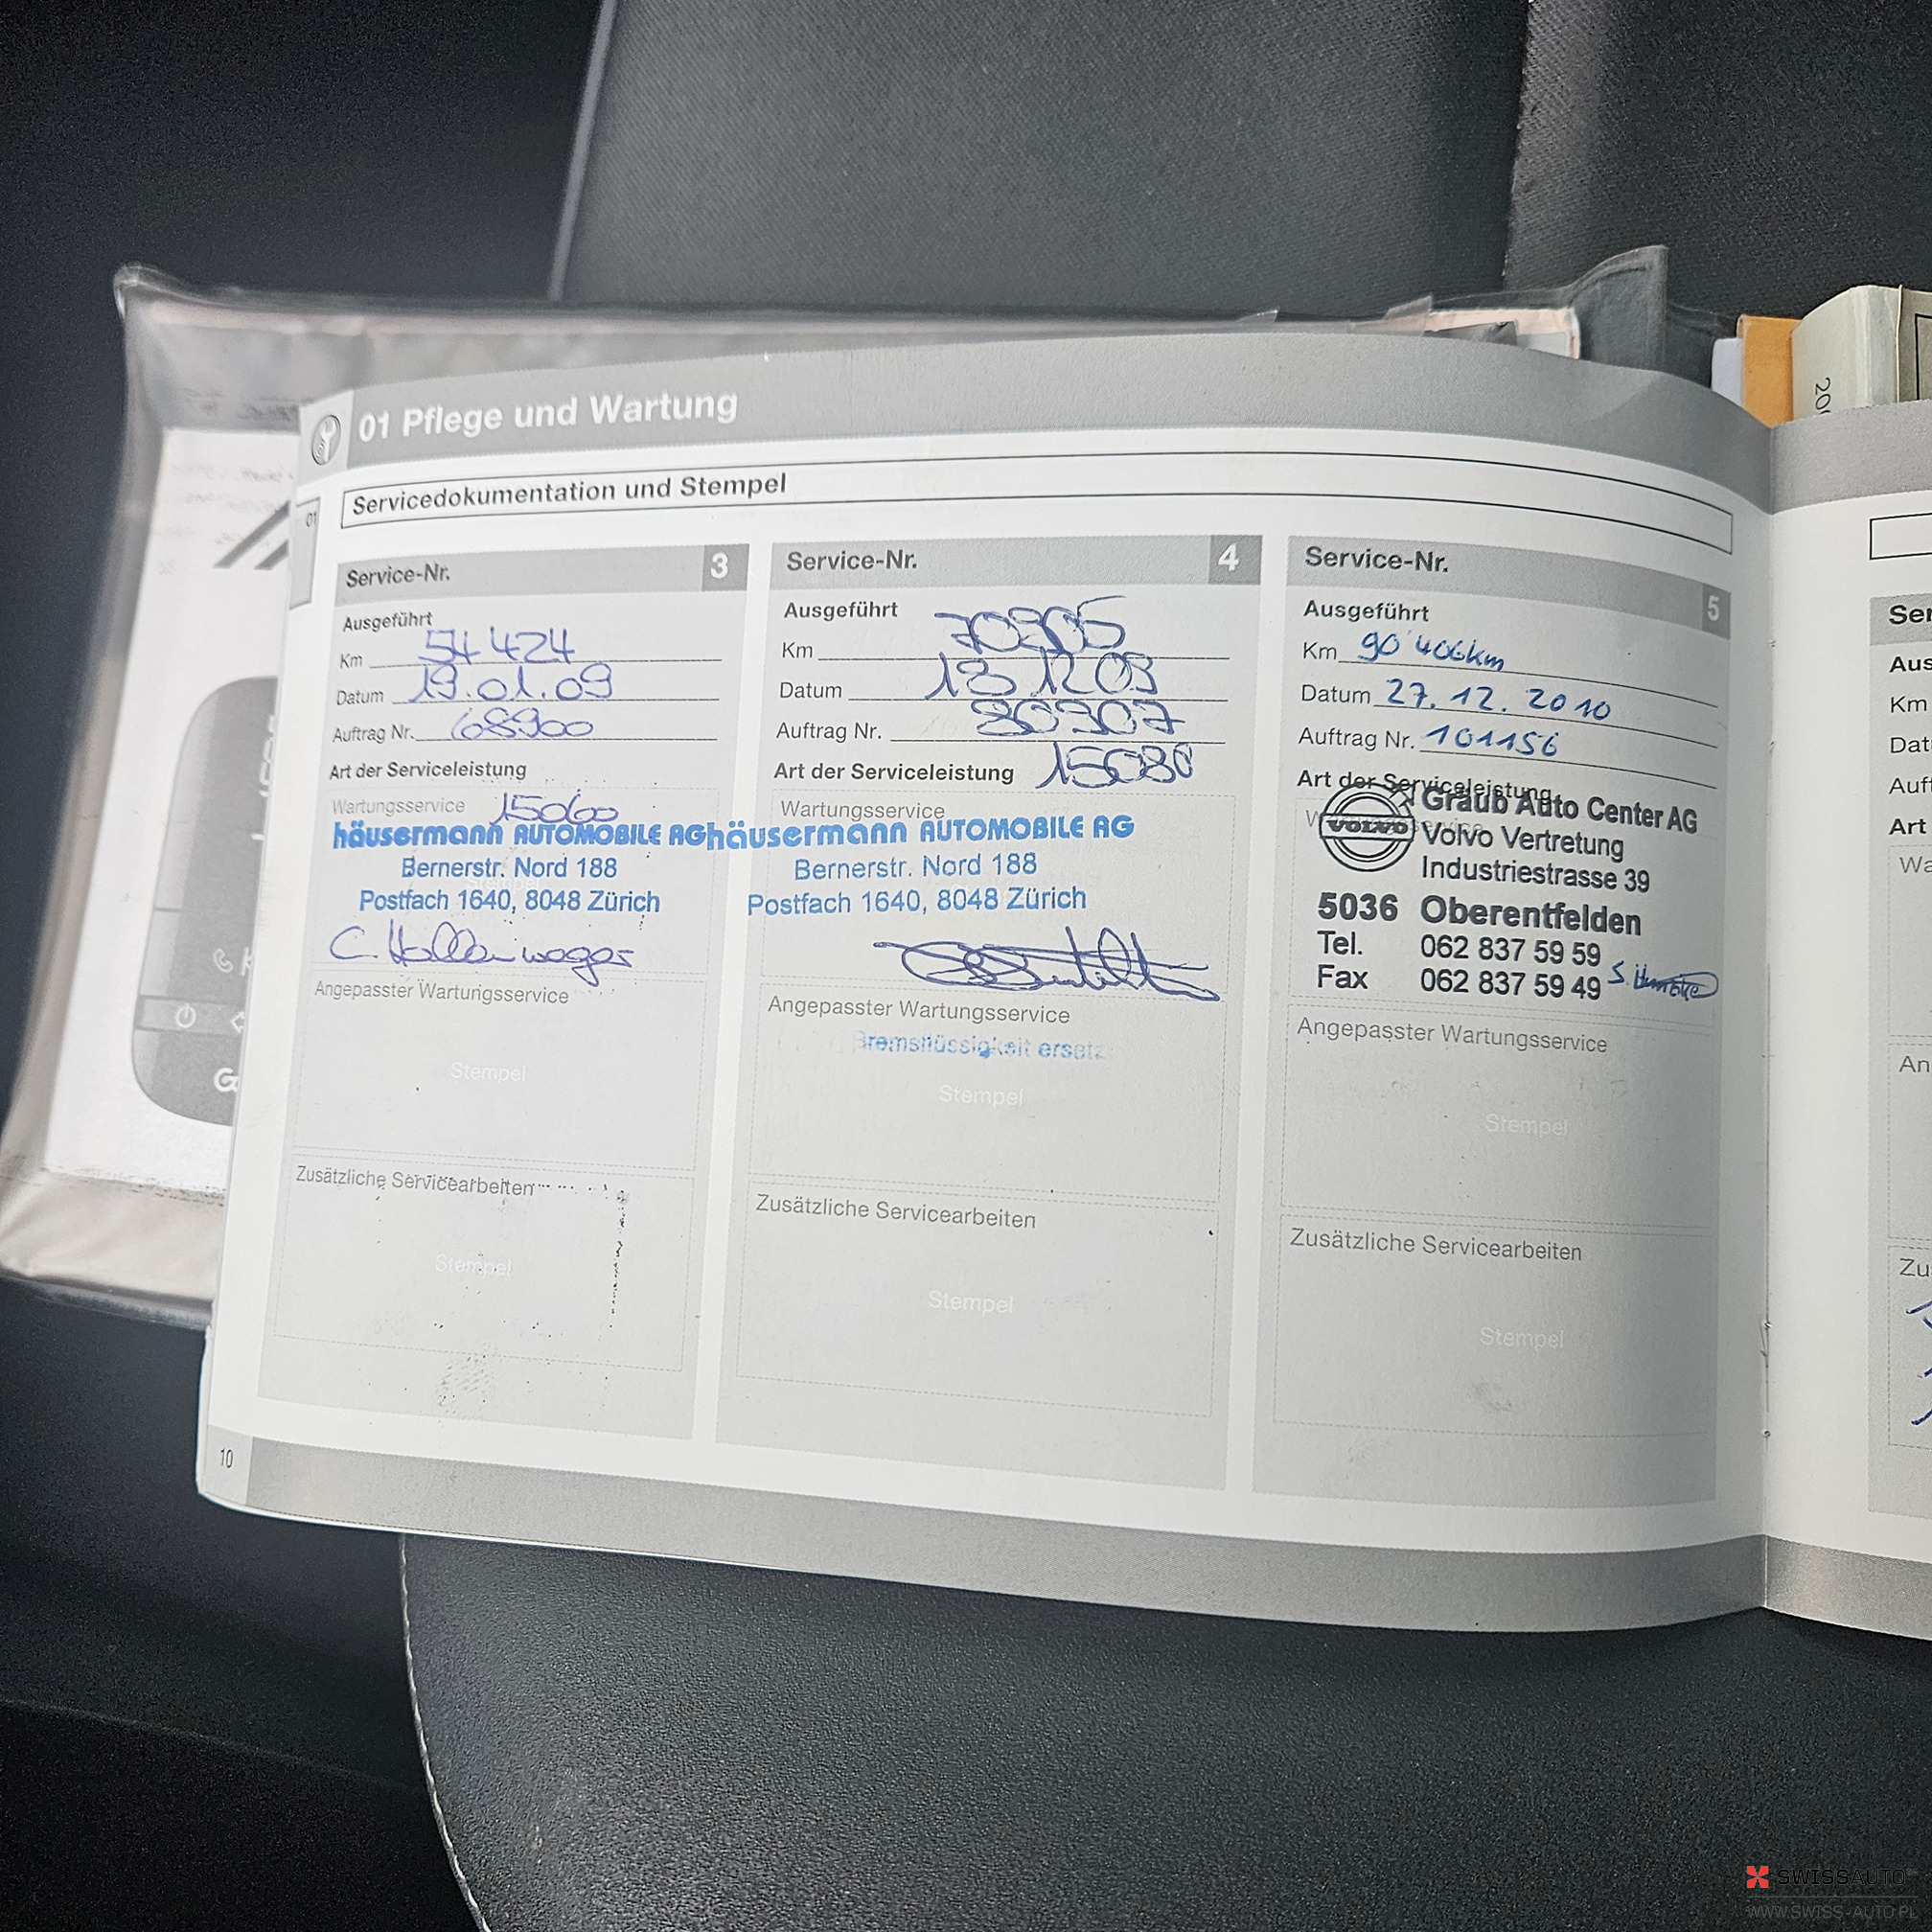 01 Pflege und Wartung
Servicedokumentation und Stempel
01
Service-Nr. 3
Ausgeführt
Km 54424
Datum 19.01.09
Auftrag Nr. 68900
Art der Serviceleistung
Wartungsservice 15060
häusermann AUTOMOBILE AG
Bernerstr. Nord 188
Postfach 1640, 8048 Zürich
Angepasster Wartungsservice
Stempel
Zusätzliche Servicearbeiten
Stempel
Service-Nr. 4
Ausgeführt
Km 70905
Datum
Auftrag Nr. 80307
Art der Serviceleistung 15080
Wartungsservice
häusermann AUTOMOBILE AG
Bernerstr. Nord 188
Postfach 1640, 8048 Zürich
Angepasster Wartungsservice
Bremsflüssigkeit ersetz
Stempel
Zusätzliche Servicearbeiten
Stempel
Service-Nr. 5
Ausgeführt
Km 90'406km
Datum 27.12.2010
Auftrag Nr. 101156
Art der Serviceleistung
VOLVO
Graub Auto Center AG
Volvo Vertretung
Industriestrasse 39
5036 Oberentfelden
Tel. 062 837 59 59
Fax 062 837 59 49
Angepasster Wartungsservice
Stempel
Zusätzliche Servicearbeiten
Stempel
10
Ser
Aus
Km
Dat
Auft
Art
Wa
An
Zu
SWISSAUTO
WWW.SWISS-AUTO.PL